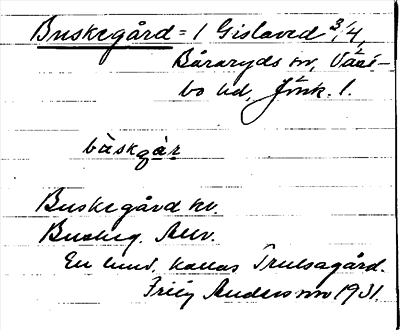 Buskegård = 1 Gislaved 3/4,
Båraryds sn, Väst-
bo hd, Jönk. l.
bàskgàr
Buskegård hv.
Buskeg. Allv.
En hmd. kallas Trulsagård.
Andersson 1931.